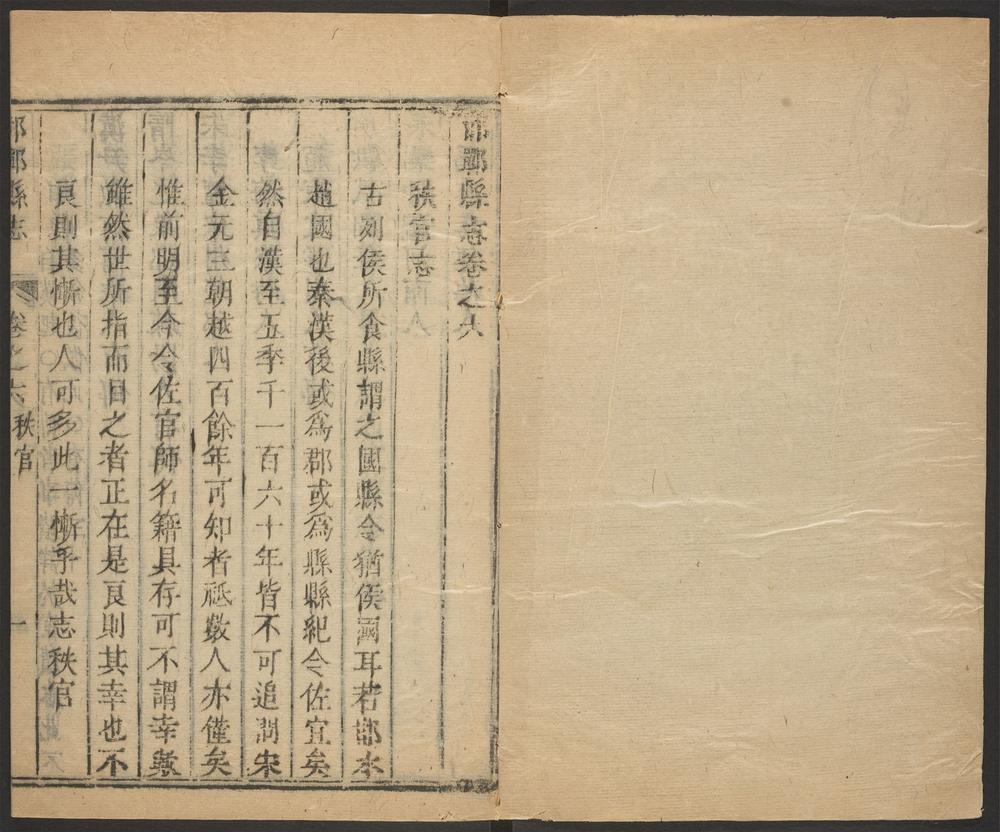 邯鄲縣志卷之六
秩官志
古列侯所食縣謂之國縣令猶侯國耳若鄲本
趙國也秦漢後或爲郡或爲縣縣紀令佐宜矣
然自漢至五季千一百六十年皆不可追溯宋
金元三朝越四百餘年可知者祗數人亦僅矣
惟前明至今令佐官師名籍具存可不謂幸歟
雖然世所指而目之者正在是良則其幸也不
良則其慚也人可多此一慚乎哉志秩官
邯鄲縣志
卷之六秩官
一